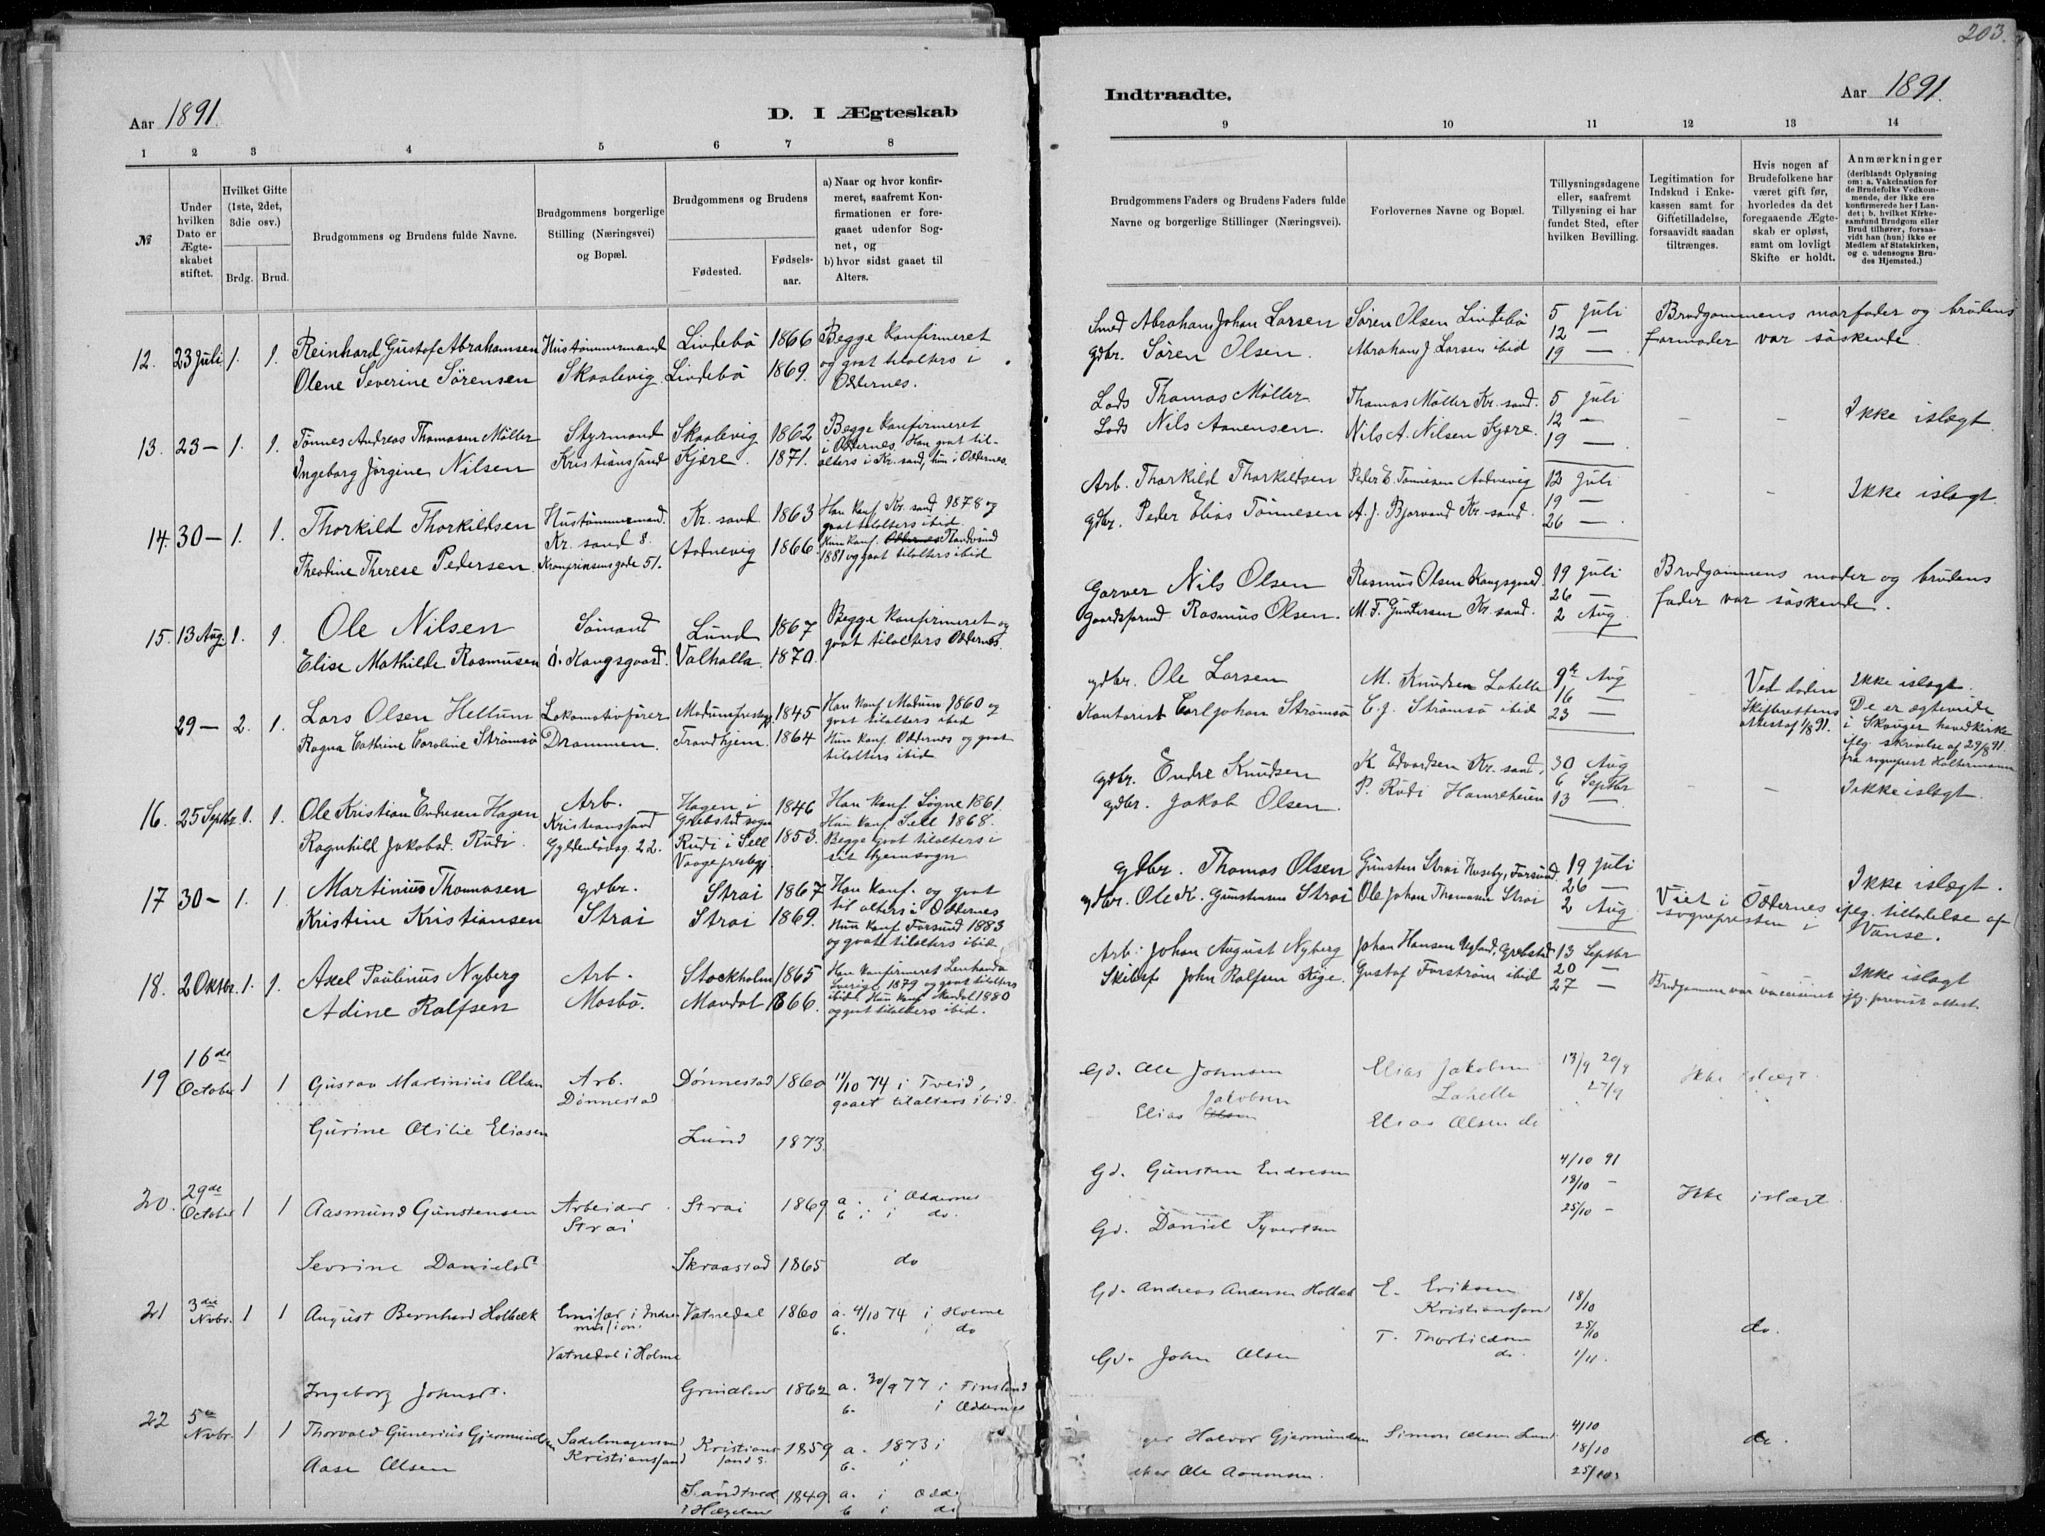 203.
Aar 1891.
D. I Ægteskab
Indtraadte.
Aar 1891.
1 2 3 4 5 6 7 8
9 10 11 12 13 14
№
Under hvilken Dato er Ægteskabet stiftet.
Hvilket Gifte (1ste, 2det, 3die osv.)
Brdg. Brud.
Brudgommens og Brudens fulde Navne.
Brudgommens borgerlige Stilling (Næringsvei) og Bopæl.
Brudgommens og Brudens
Fødested.
Fødselsaar.
a) Naar og hvor konfirmeret, saafremt Konfirmationen er foregaaet udenfor Sognet, og
b) hvor sidst gaaet til Alters.
Brudgommens Faders og Brudens Faders fulde Navne og borgerlige Stillinger (Næringsvei).
Forlovernes Navne og Bopæl.
Tillysningsdagene eller, saafremt Tillysning ei har fundet Sted, efter hvilken Bevilling.
Legitimation for Indskud i Enkekassen samt for Giftetilladelse, forsaavidt saadan tiltrænges.
Hvis nogen af Brudefolkene har været gift før, hvorledes da det foregaaende Ægteskab er opløst, samt om lovligt Skifte er holdt.
Anmærkninger
(deriblandt Oplysning om: a. Vakcination for de Brudefolks Vedkommende, der ikke ere konfirmerede her i Landet; b. hvilket Kirkesamfund Brudgom eller Brud tilhører, forsaavidt han (hun) ikke er Medlem af Statskirken, og c. udensogns Brudes Hjemsted.)
12. 23 Juli 1. 1. Reinhard Gustof Abrahamsen Hustømmermand Lindebö 1866 Begge konfirmeret
Olene Severine Sörensen Skaalevig Lindebö 1869. og gaat tilalters i
Oddernes.
Smed Abraham Johan Larsen Sören Olsen Lindebö 5 Juli Brudgommens morfader og brudens
gdbr. Sören Olsen. Abraham J. Larsen ibid 12 — farmoder var söskende.
19 —
13. 23 — 1. 1. Tönnes Andreas Thomasen Möller Styrmand Skaalevig 1862 Begge konfirmeret
Ingeborg Jörgine Nilsen Kristianssand Kjære. 1871. i Oddernes. Han gaat til-
alters i Kr.sand, hun i Oddernes.
Lods Thomas Möller Thomas Möller Kr. sand. 5 Juli
Lods Nils Aanensen. Nils A. Nilsen Kjære. 12 — - - Ikke islægt.
19 —
14. 30 — 1. 1. Thorkild Thorkildsen Hustømmermand. Kr. sand 1863 Han konf. Kr. sand 1878 og
gaat tilalters ibid.
Theodine Therese Pedersen. Kr. sand 8. Kronprinsensgade 51. Aadnevig 1866 Hun konf. Oddernes Randøsund
1881 og gaat tilalters ibid
Arb. Thorkild Thorkildsen Peder E. Tönnesen Aadnevig 12 Juli
gdbr. Peder Elias Tönnesen A. J. Bjorvand Kr. sand. 19 — - - Ikke islægt.
26 —
15. 13 Aug. 1. 1. Ole Nilsen Sömand Lund 1867 Begge konfirmeret og
Elise Mathilde Rasmusen ö. Kongsgaard. Valhalla. 1870. gaat tilalters Oddernes.
Garver Nils Olsen Rasmus Olsen Kongsgaard. 19 Juli Brudgommens moder og brudens
Gaardsforvd. Rasmus Olsen. M. F. Gundersen Kr. sand. 26 — fader var söskende.
2 Aug.
29 — 2. 1. Lars Olsen Hellum Lokomotivförer Modumspresteg. 1845 Han konf Modum 1860 og
gaat tilalters ibid
Ragna Cathrine Caroline Strömsö Drammen. Trondhjem. 1864 Hun konf. Oddernes og gaat
tilalters ibid
gdbr. Ole Larsen M. Knudsen Lahelle 9de Aug Ved döden Ikke islægt.
Kontorist Carl Johan Strömsö C. J. Strömsö ibid 16 — Skifterettens De er ægteviede
23 — attest af 1/8 91. i Skouger hovedkirke
iflg. skrivelse af 29/8 91.
fra sogneprest Haltermann
16. 25 Septbr. 1. 1. Ole Kristian Endresen Hagen Arb. Hagen i 1846 Han konf Søgne 1861.
Kristianssand Grebstad sogn Hun konf. Sell 1868.
Ragnhild Jakobsd. Rudi Gyldenlövsg. 22. Rudi i Sell 1853. Begge gaat tilalters i
Vaage prestegj. sit hjemsogn
gdbr. Endre Knudsen K. Edvardsen Kr. sand. 30 Aug
gdbr. Jakob Olsen. P. Rudi Hamreheien 6 Septbr - - Ikke islægt.
13 —
17 30 — 1. 1. Martinius Thomasen gdbr. Strai 1867 Han konf. og gaat
til alters i Oddernes
Kristine Kristiansen Strai Strai 1869. Hun konf Farsund 1883
og gaat tilalters ibid.
gdbr. Thomas Olsen Gunsten Strai Huseby, Farsund 19 Juli Ikke islægt.
gdbr. Ole K. Gunstensen Strai Ole Johan Thomasen Strai 26 — Viet i Oddernes iflg. tilladelse af
2 Aug sognepresten i Vanse.
18. 2 Oktbr. 1. 1. Axel Paulinus Nyberg Arb. Stockholm 1865 Han konfirmeret Lenhavda
Sverige 1879 og gaat tilalters
Adine Ralfsen Mosbö. Mandal 1866. ibid. Hun konf Mandal 1880
og gaat tilalters ibid.
Arb. Johan August Nyberg Johan Hansen Ugland, Grebstad 13 Septbr
Skibsf John Ralfsen Kige. Gustaf Forström ibid 20 — Ikke islægt
27 — Brudgommen var vaccineret iflg. previst attest.
19 16de October 1 1 Gustav Martinius Olsen Arb. Dønnestad 1860 11/10 74 i Tveid,
Dønnestad gaaet tilalters ibid.
Gurine Otilie Eliasen Lund 1873.
Gd. Ole Johnsen Elias Jakobsen 13/9 20/9 Ikke islægt.
Elias Olsen Jakobsen Lahelle 27/9
Elias Olsen do
20. 29de October 1 1 Aasmund Gunstensen Arbeider Strai 1869 a. i Oddernes
Strai b. i do.
Sevrine Danielsd. Skraastad 1865 do
Gd. Gunsten Endresen 4/10 91
18/10 - Ikke islægt.
Gd. Daniel Syvertsen 25/10 -
21 3die Nvbr. 1 1 August Bernhard Holbæk Emissær i Indre Vatnedal 1860 a. 4/10 74 i Holme
mission. b. i do
Vatnedal i Holme
Ingeborg Johnsd. 1862 a. 30/9 77 i Finsland
b. i Oddernes
Gd. Andreas Andersen Holbæk E. Eriksen 18/10
Kristianssand 25/10 do.
Gd. John Olsen do. 1/11.
22 5te Nvbr. 1 1 Thorvald Gunerius Gjermundsen Sadelmagersvend Kristianssand S. 1859 a. 1873 i
Aase Olsen Kristianssand b. i
Sandtved 1849 a. i Odd
i b. i do
Halvor Gjermundsen Simon Olsen Lund 4/10
18/10 do.
Ole Aanensen. 25/10.